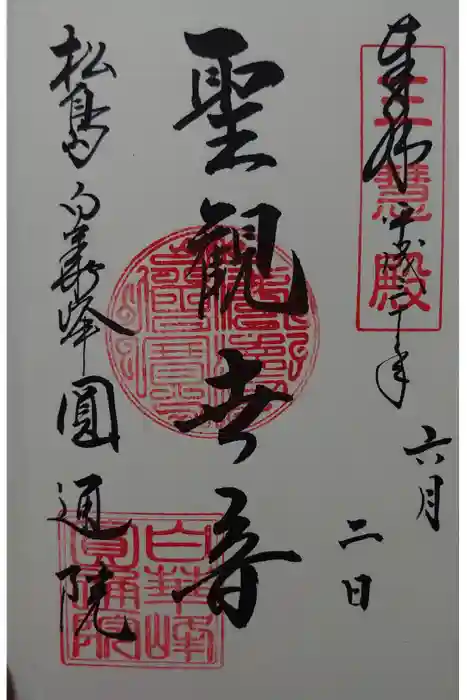 奉拝 平成二十年
六月
二日
三慧殿
聖観世音
松島 白華峰 圓通院
白華峰
圓通院